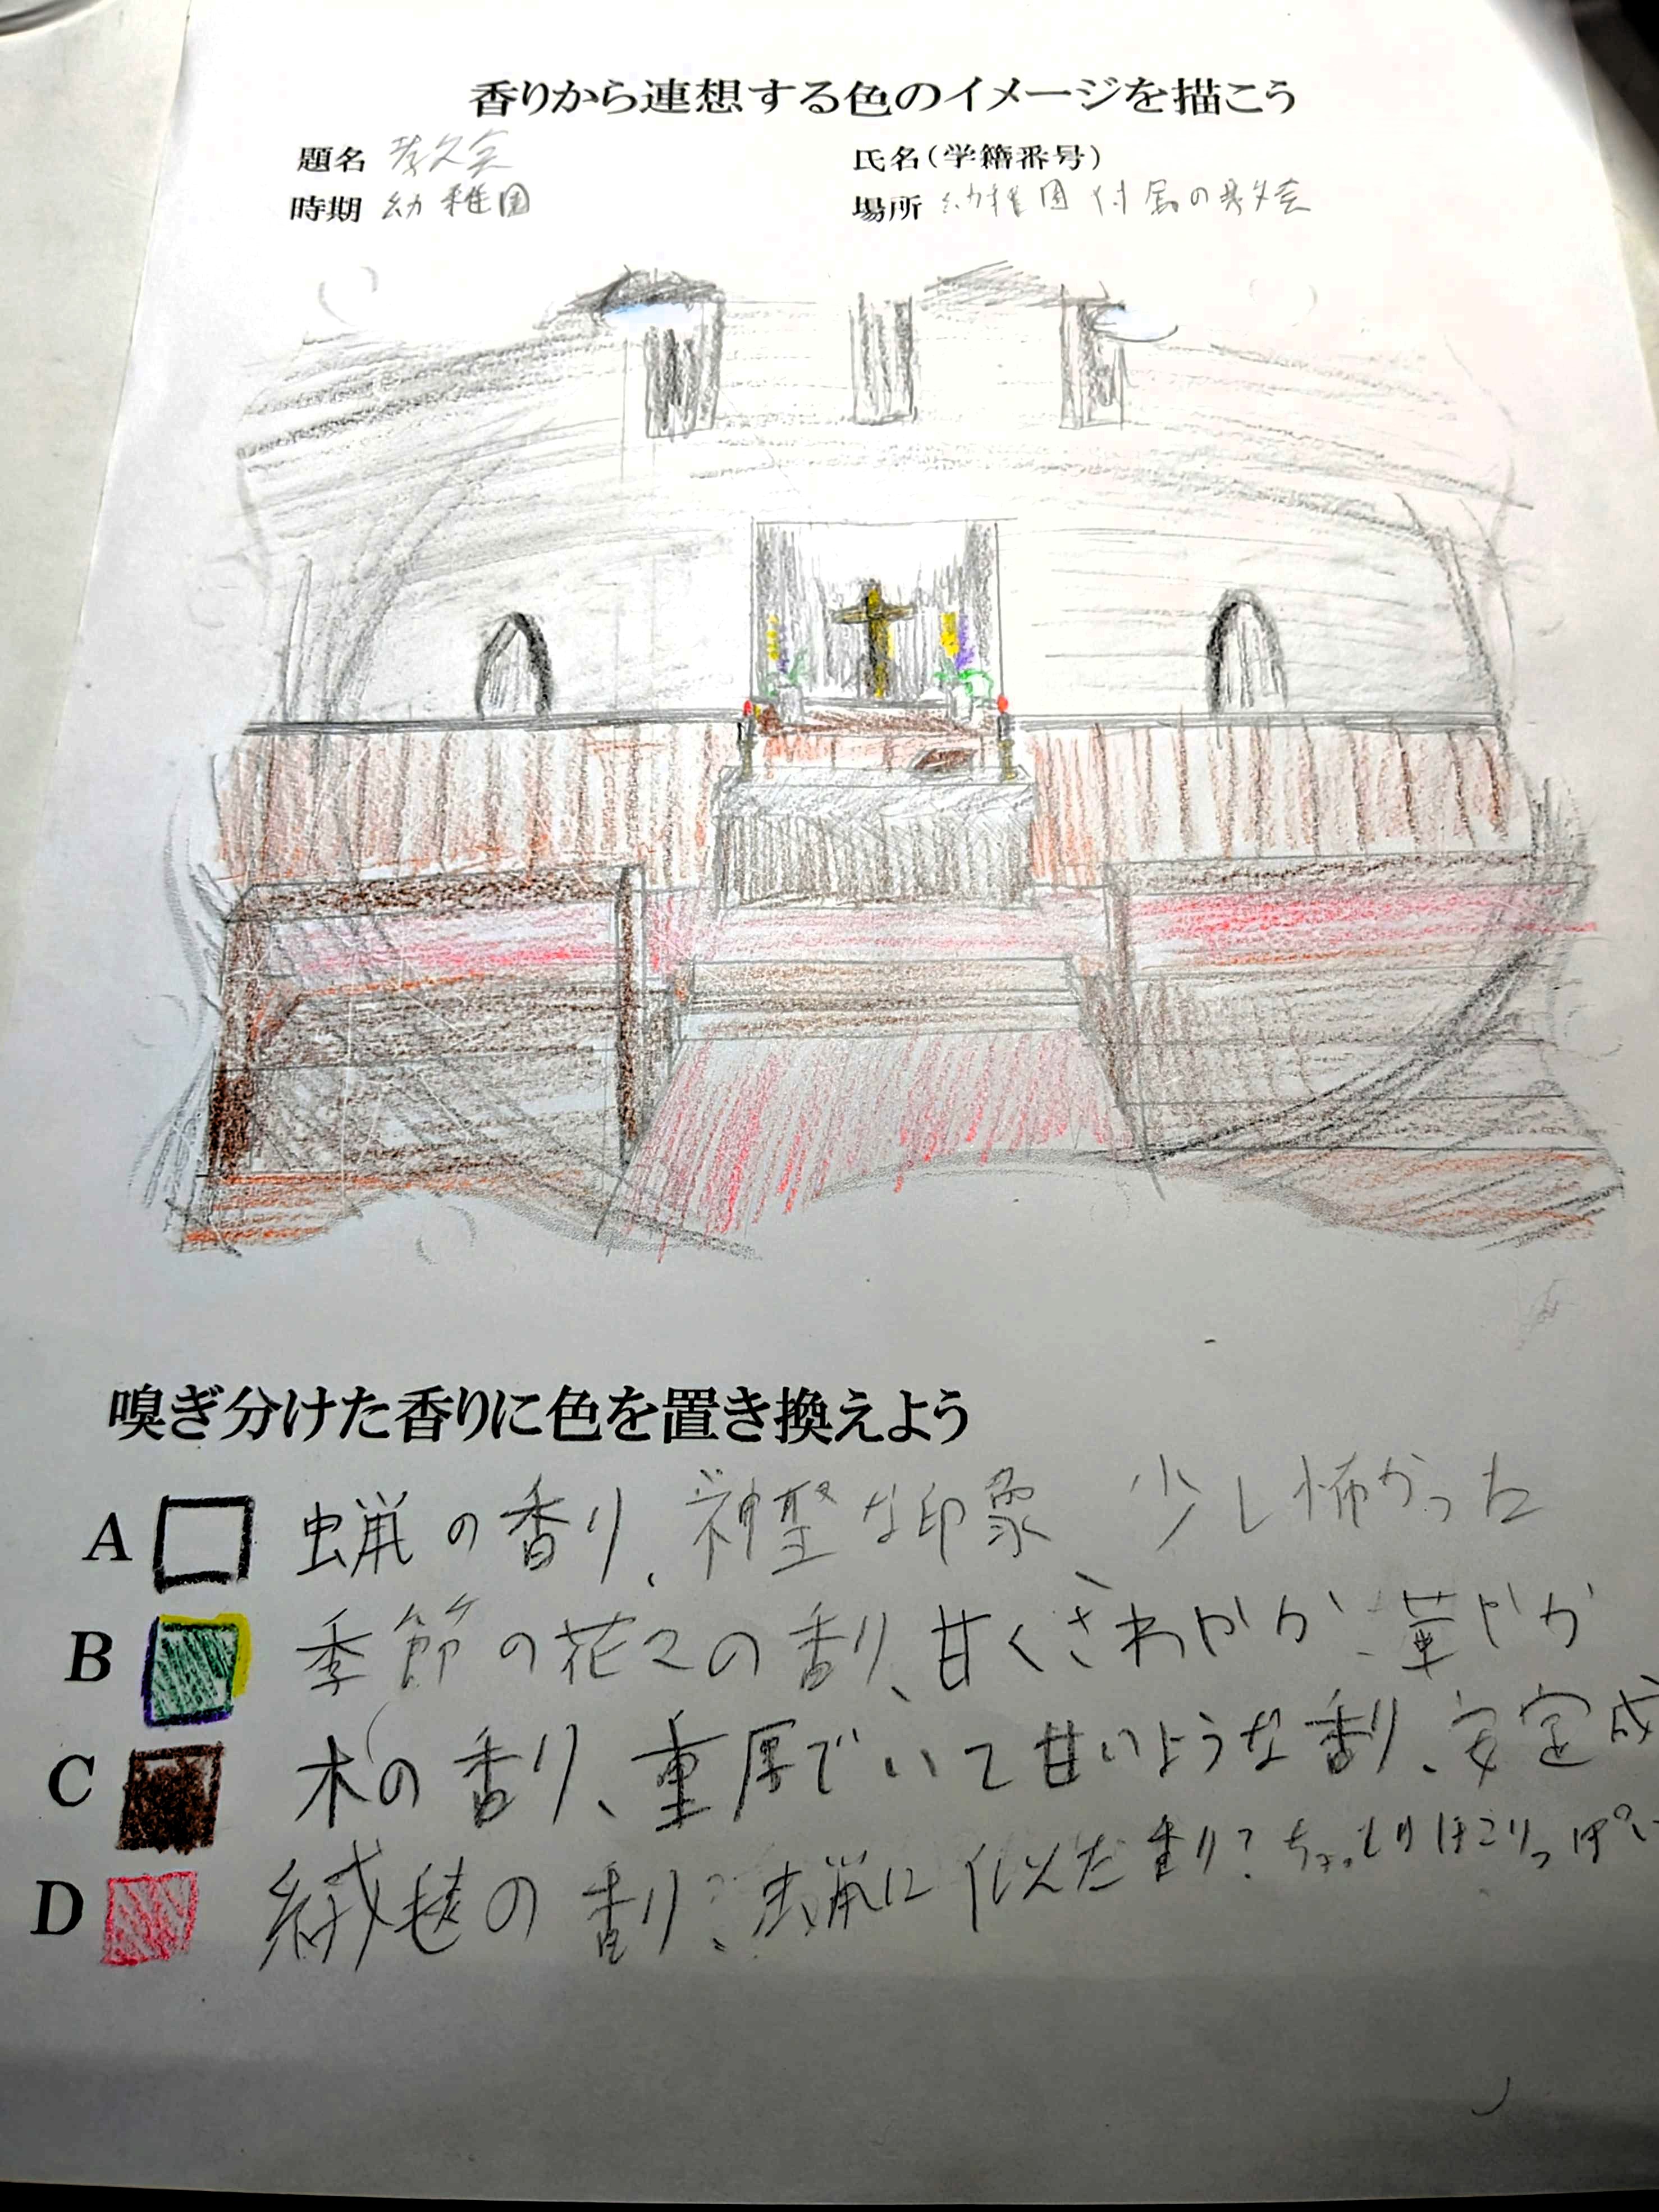 香りから連想する色のイメージを描こう
題名 教会
氏名(学籍番号)
時期 幼稚園
場所 幼稚園付属の教会
嗅ぎ分けた香りに色を置き換えよう
A 蝋の香り、神聖な印象、少し怖かった
B 季節の花々の香り、甘くさわやか、華やか
C 木の香り、重厚でいて甘いような香り、安定成
D 絨毯の香り:蝋に似た香り?ちょっとほこりっぽい